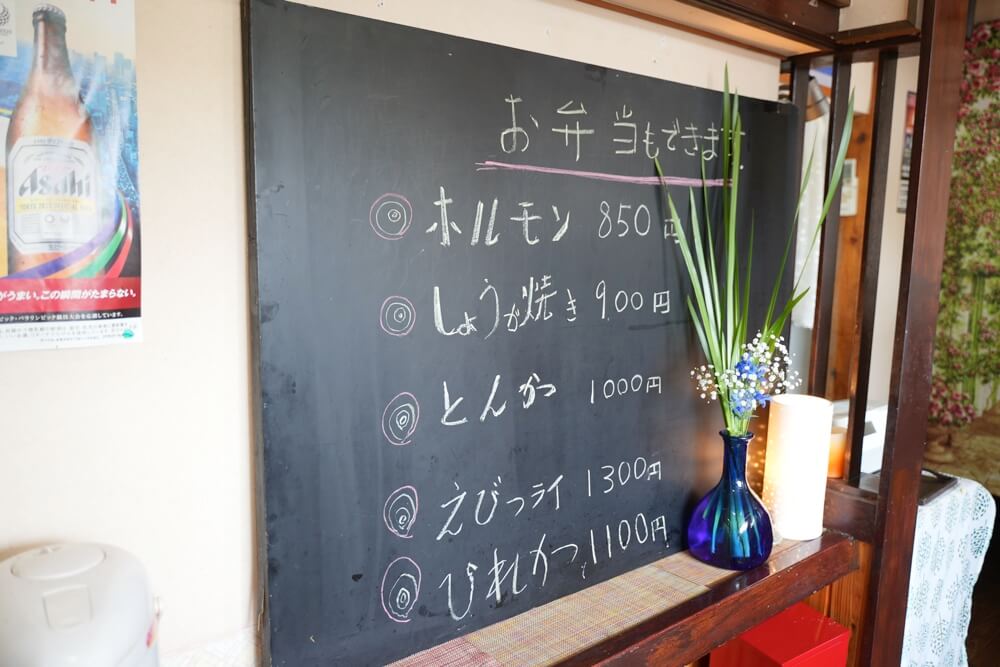 Asahi
がうまい。この瞬間がたまらない。
お弁当もできます
ホルモン 850円
しょうが焼き 900円
とんかつ 1000円
えびっライ 1300円
びれかつ 1100円